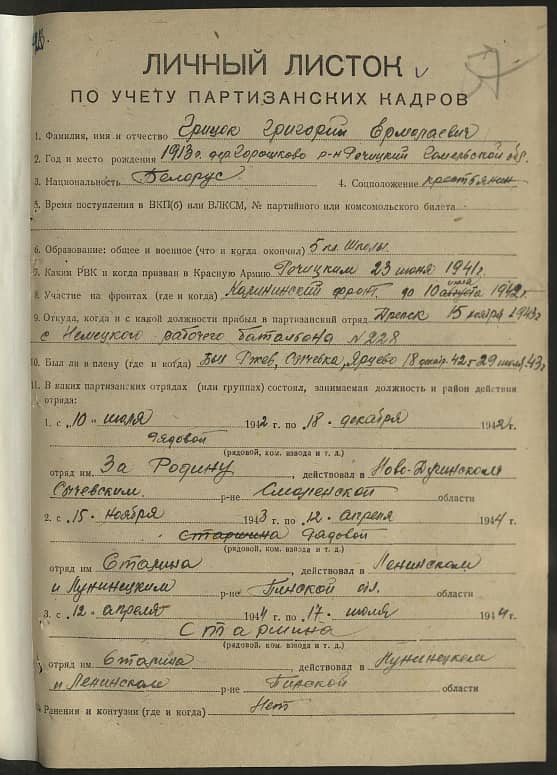 ЛИЧНЫЙ ЛИСТОК
ПО УЧЕТУ ПАРТИЗАНСКИХ КАДРОВ
1. Фамилия, имя и отчество Грицок Григорий Ермолаевич
2. Год и место рождения 1913 г. дер. Горошково р-н Речицкий Гомельской обл.
3. Национальность Белорус 4. Соцположение крестьянин
5. Время поступления в ВКП(б) или ВЛКСМ, № партийного или комсомольского билета
6. Образование: общее и военное (что и когда окончил) 5 кл. Школы
7. Каким РВК и когда призван в Красную Армию Речицким 23 июня 1941 г.
8. Участие на фронтах (где и когда) Калининский фронт. до 10 августа июля 1942 г.
9. Откуда, когда и с какой должности прибыл в партизанский отряд 15 ноября 1943 г
с Немецкого рабочего баталЬона № 228
10. Был ли в плену (где и когда) Был Ржев, Сычевка, Ярцево 18 декабр. 42 г 29 июля, 43 г
11. В каких партизанских отрядах (или группах) состоял, занимаемая должность и район действия
отряда:
1. с 10 - июля 1942 г. по 18 - декабря 1942 г.
Рядовой
(рядовой, ком. взвода и т. д.)
отряд им. За Родину, действовал в Ново-Дугинском
Сычевским. р-не Смоленской области
2. с 15 - ноября 1943 г. по 12 - апреля 1944 г.
Старшина Рядовой
(рядовой, ком. взвода и т. д.)
отряд им Сталина, действовал в Ленинском
и Лунинецким р-не Пинской обл. области
3. с 12 - апреля 1944 г. по 17 - июля 1944 г.
Старшина
(рядовой, ком. взвода и т. д.)
отряд им. Сталина, действовал в Лунинецком
и Ленинском р-не Пинской области
Ранения и контузии (где и когда) Нет